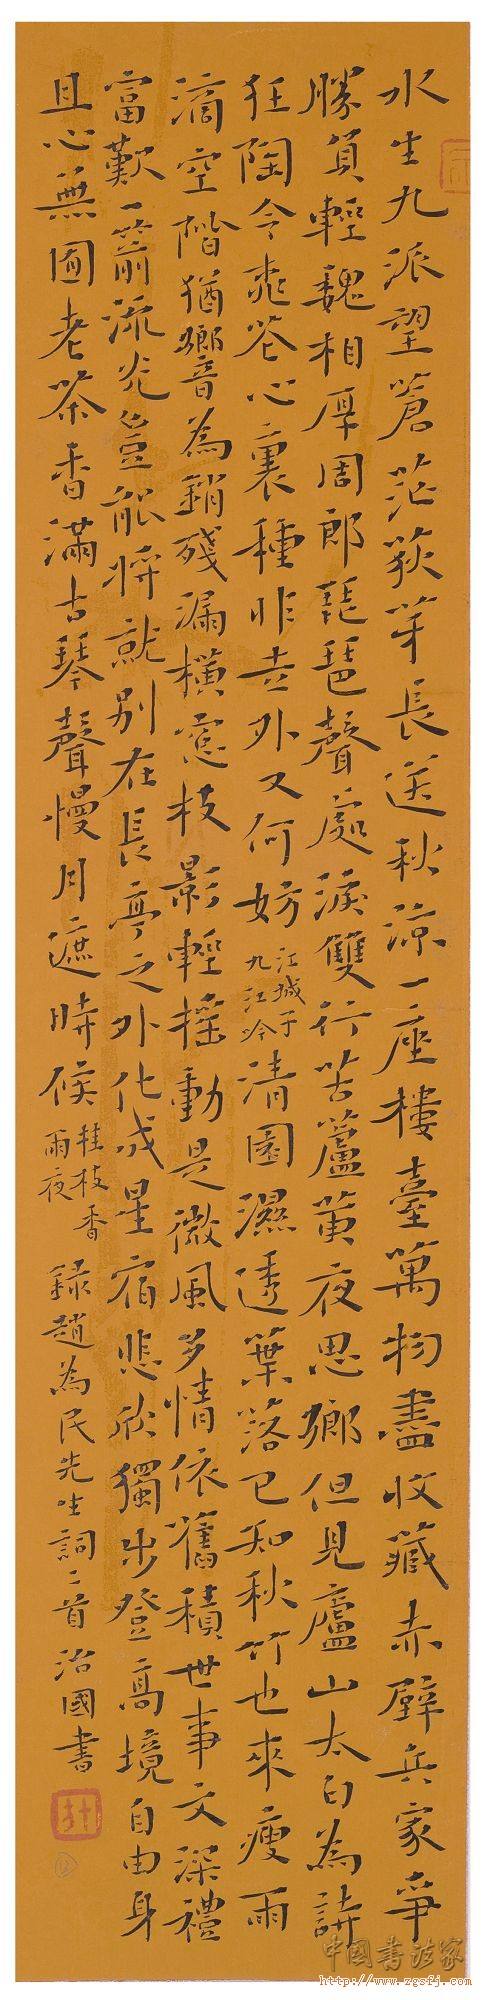 水生九派望蒼茫荻芽長送秋涼一座樓臺萬物盡收藏赤壁兵家爭
勝負輕魏相厚周郎琵琶聲處淚雙行苦蘆黃夜思鄉但見廬山太白為詩
狂陶令乖花心裏種非去外又何妨
江城子
九江吟
清園濕透葉落已知秋竹也來瘦雨
滴空階猶鄉音為銷殘漏橫窓枝影輕搖動是微風多情依舊積世事文深禮
富歎一箭流光豈能將就別在長亭之外化成星宿悲欣獨步登高境自由身
且心無囿老茶香滿古琴聲慢月遮時候
桂枝香
雨夜
錄趙為民先生詞二首治國書
中国书法家
http://www.zgsfj.com